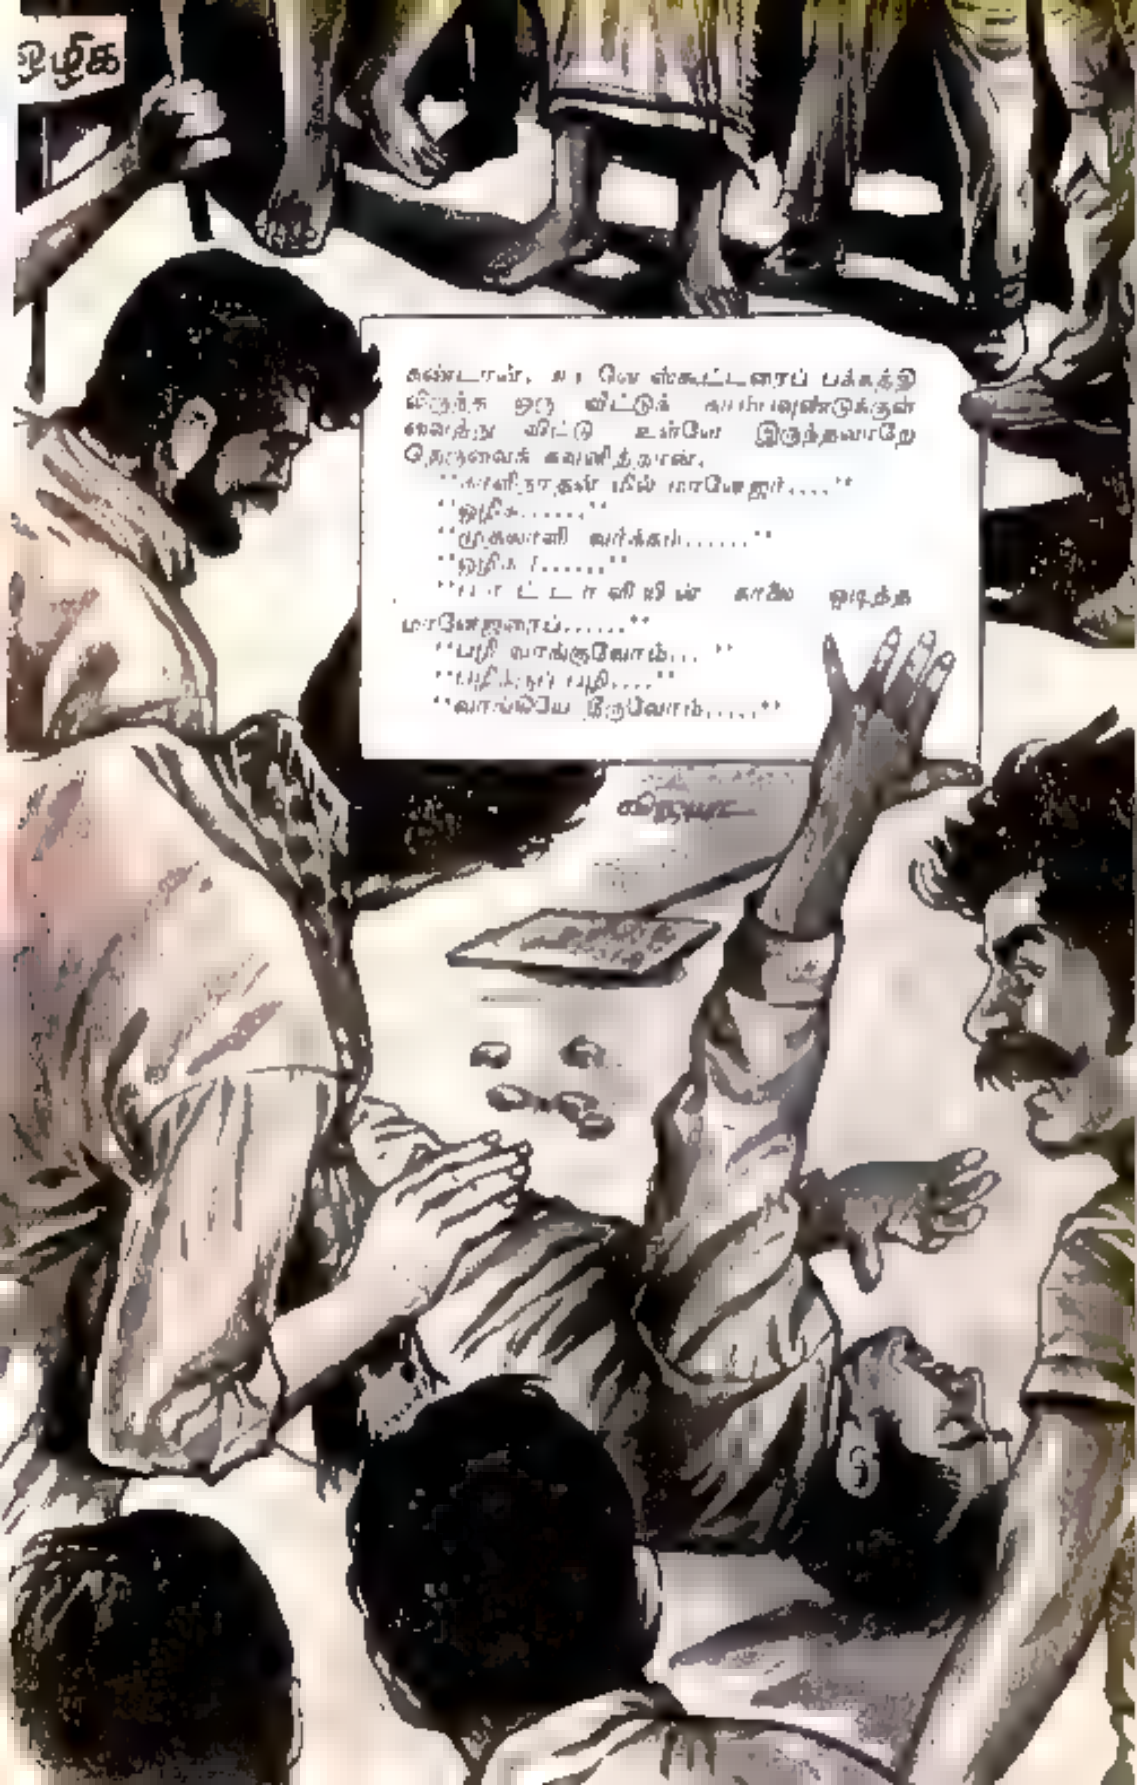 ஒழிக
கண்டான். ஸ்கூட்டரைப் பக்கத்தி
லிருந்த ஒரு வீட்டுக் காம்பவுண்டுக்குள்
வைத்து விட்டு உள்ளே இருந்தவாறே
தெருவைக் கவனித்தான்.
"காளிநாதன் மில் மானேஜர்...."
"ஒழிக......"
"முதலாளி வர்க்கம்......"
"ஒழிக !......"
"பாட்டாளியின் காலை ஒடித்த
மானேஜரைப்......"
"பழி வாங்குவோம்... "
"பழிக்குப் பழி...."
"வாங்கியே தீருவோம்....."